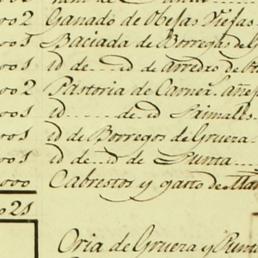 002 Ganado de Obejas Viejas
001 Baciada de Borregas de
001 id de id de arredro de
002 Pastoria de Carner. añej
001 id de id Primales
001 id de Borregos de Gruera
001 id de id de Punta
000 Cabrestos y gasto de
021
Cria de Gruera y Punta